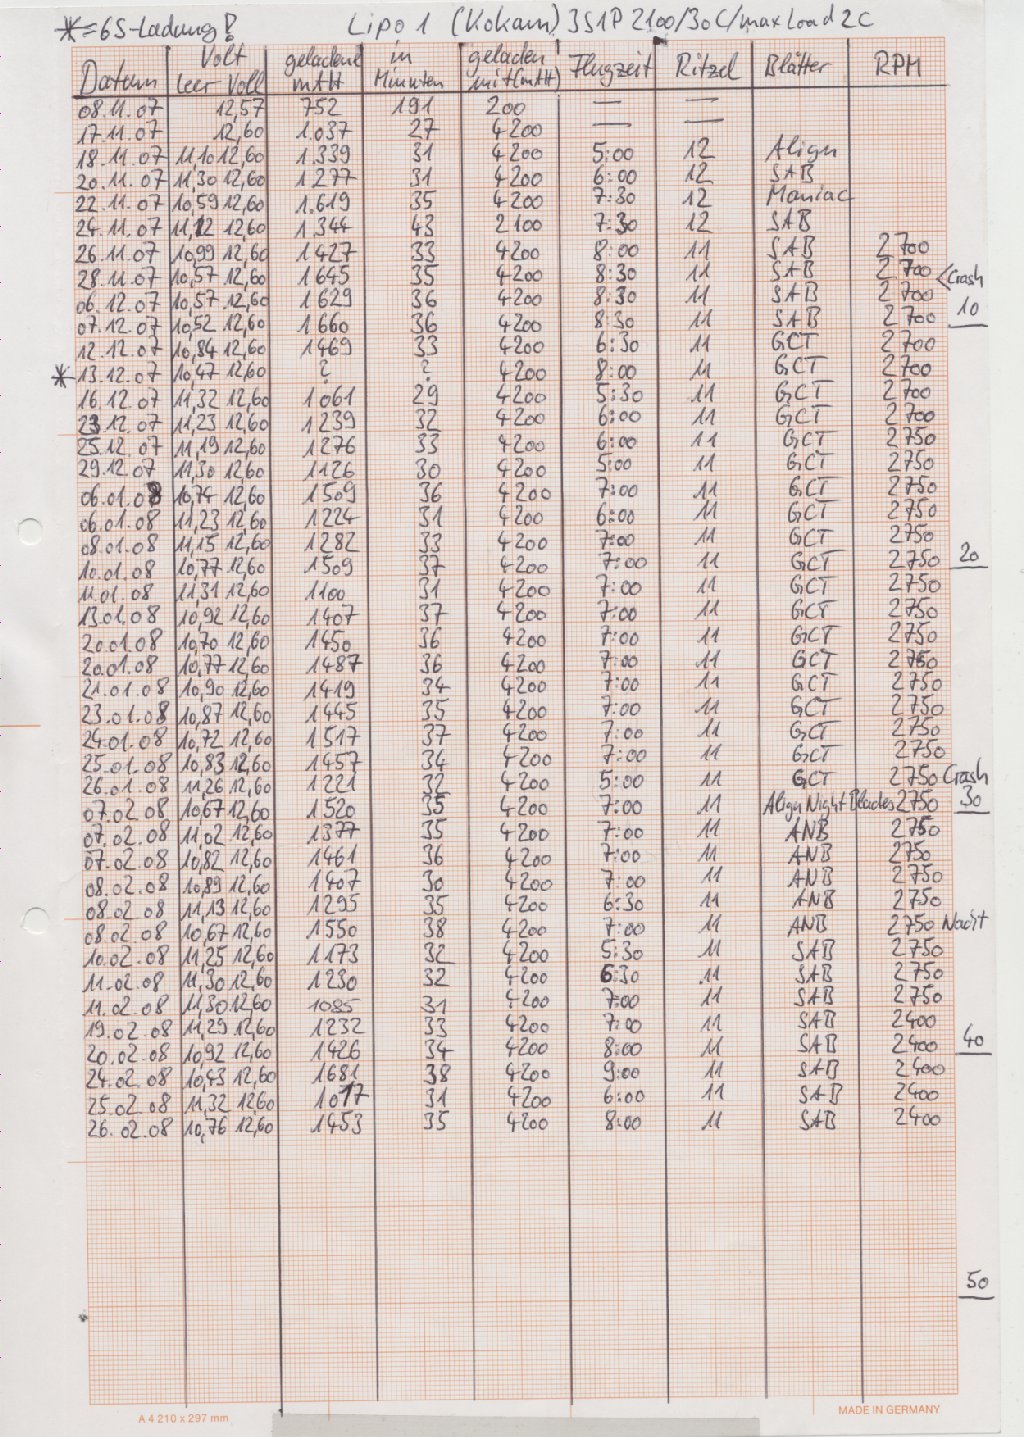 *=6S-Ladung! Lipo 1 (Kokam) 3S1P 2100/30C/max Load 2C
Datum Volt Leer Voll geladene mAH in Minuten geladen mit (mAH) Flugzeit Ritzel Blätter RPM
08.11.07 12,57 752 191 200 — —
17.11.07 12,60 1.037 27 4200 — —
18.11.07 11,10 12,60 1.339 31 4200 5:00 12 Align
20.11.07 11,30 12,60 1277 31 4200 6:00 12 SAB
22.11.07 10,59 12,60 1.619 35 4200 7:30 12 Maniac
24.11.07 11,12 12,60 1.344 43 2100 7:30 12 SAB
26.11.07 10,99 12,60 1427 33 4200 8:00 11 SAB 2700
28.11.07 10,57 12,60 1645 35 4200 8:30 11 SAB 2700 <Crash
06.12.07 10,57 12,60 1629 36 4200 8:30 11 SAB 2700
07.12.07 10,52 12,60 1660 36 4200 8:30 11 SAB 2700 10
12.12.07 10,84 12,60 1469 33 4200 6:30 11 GCT 2700
* 13.12.07 10,47 12,60 ? ? 4200 8:00 11 GCT 2700
16.12.07 11,32 12,60 1061 29 4200 5:30 11 GCT 2700
23.12.07 11,23 12,60 1239 32 4200 6:00 11 GCT 2700
25.12.07 11,19 12,60 1276 33 4200 6:00 11 GCT 2750
29.12.07 11,30 12,60 1126 30 4200 5:00 11 GCT 2750
06.01.08 10,74 12,60 1509 36 4200 7:00 11 GCT 2750
06.01.08 11,23 12,60 1224 31 4200 6:00 11 GCT 2750
08.01.08 11,15 12,60 1282 33 4200 7:00 11 GCT 2750
10.01.08 10,77 12,60 1509 37 4200 7:00 11 GCT 2750 20
11.01.08 11,31 12,60 1100 31 4200 7:00 11 GCT 2750
13.01.08 10,92 12,60 1407 37 4200 7:00 11 GCT 2750
20.01.08 10,70 12,60 1450 36 4200 7:00 11 GCT 2750
20.01.08 10,77 12,60 1487 36 4200 7:00 11 GCT 2750
21.01.08 10,90 12,60 1419 34 4200 7:00 11 GCT 2750
23.01.08 10,87 12,60 1445 35 4200 7:00 11 GCT 2750
24.01.08 10,72 12,60 1517 37 4200 7:00 11 GCT 2750
25.01.08 10,83 12,60 1457 34 4200 7:00 11 GCT 2750
26.01.08 11,26 12,60 1221 32 4200 5:00 11 GCT 2750 Crash
07.02.08 10,67 12,60 1520 35 4200 7:00 11 Align Night Blades 2750 30
07.02.08 11,02 12,60 1377 35 4200 7:00 11 ANB 2750
07.02.08 10,82 12,60 1461 36 4200 7:00 11 ANB 2750
08.02.08 10,89 12,60 1407 30 4200 7:00 11 ANB 2750
08.02.08 11,13 12,60 1295 35 4200 6:30 11 ANB 2750
08.02.08 10,67 12,60 1550 38 4200 7:00 11 ANB 2750 Nacht
10.02.08 11,25 12,60 1173 32 4200 5:30 11 SAB 2750
11.02.08 11,30 12,60 1230 32 4200 6:30 11 SAB 2750
11.02.08 11,30 12,60 1085 31 4200 7:00 11 SAB 2750
19.02.08 11,29 12,60 1232 33 4200 7:00 11 SAB 2400
20.02.08 10,92 12,60 1426 34 4200 8:00 11 SAB 2400 40
24.02.08 10,43 12,60 1681 38 4200 9:00 11 SAB 2400
25.02.08 11,32 12,60 1017 31 4200 6:00 11 SAB 2400
26.02.08 10,76 12,60 1453 35 4200 8:00 11 SAB 2400
50
A 4 210 x 297 mm MADE IN GERMANY